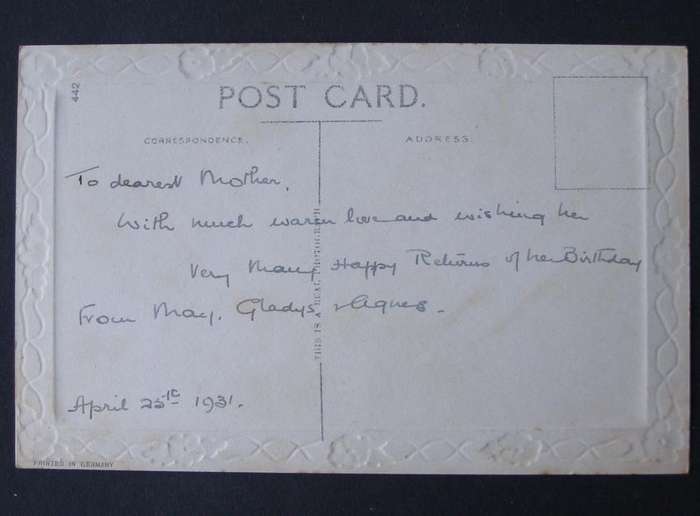 442
POST CARD.
CORRESPONDENCE.
ADDRESS.
To dearest Mother.
With much warm love and wishing her
Very Many Happy Returns of her Birthday
From May. Gladys & Agnes.
THIS IS A REAL PHOTOGRAPH
April 25th 1931.
PRINTED IN GERMANY